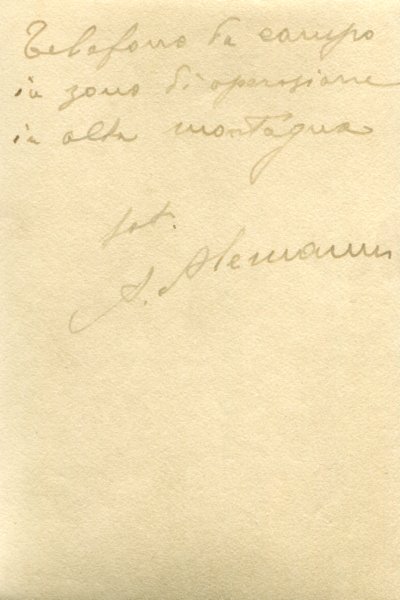 Telefono da campo
in zona di operazione
in alta montagna
fot.
A. Alemanni